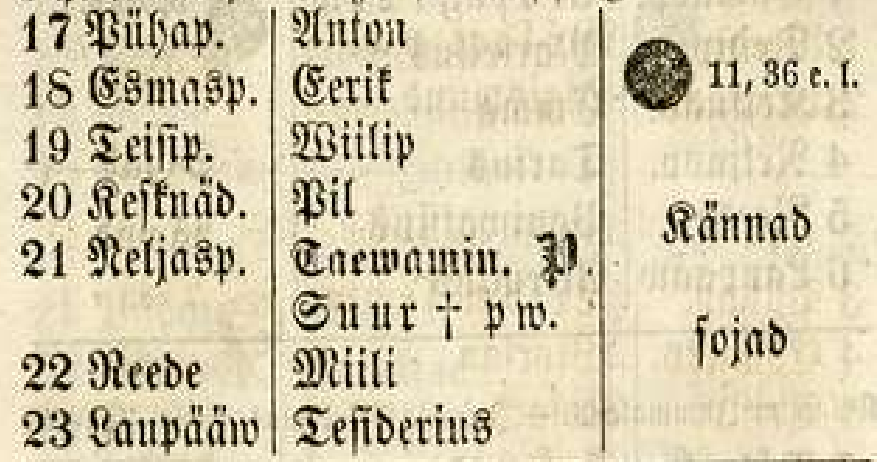 17 Pühap. Anton
18 Esmasp. Eerik 11, 36 e. l.
19 Teisip. Wiilip
20 Kesknäd. Pil Kännad
21 Neljasp. Taewamin. P.
Suur † pw. sojad
22 Reede Miili
23 Laupääw Tesiderius